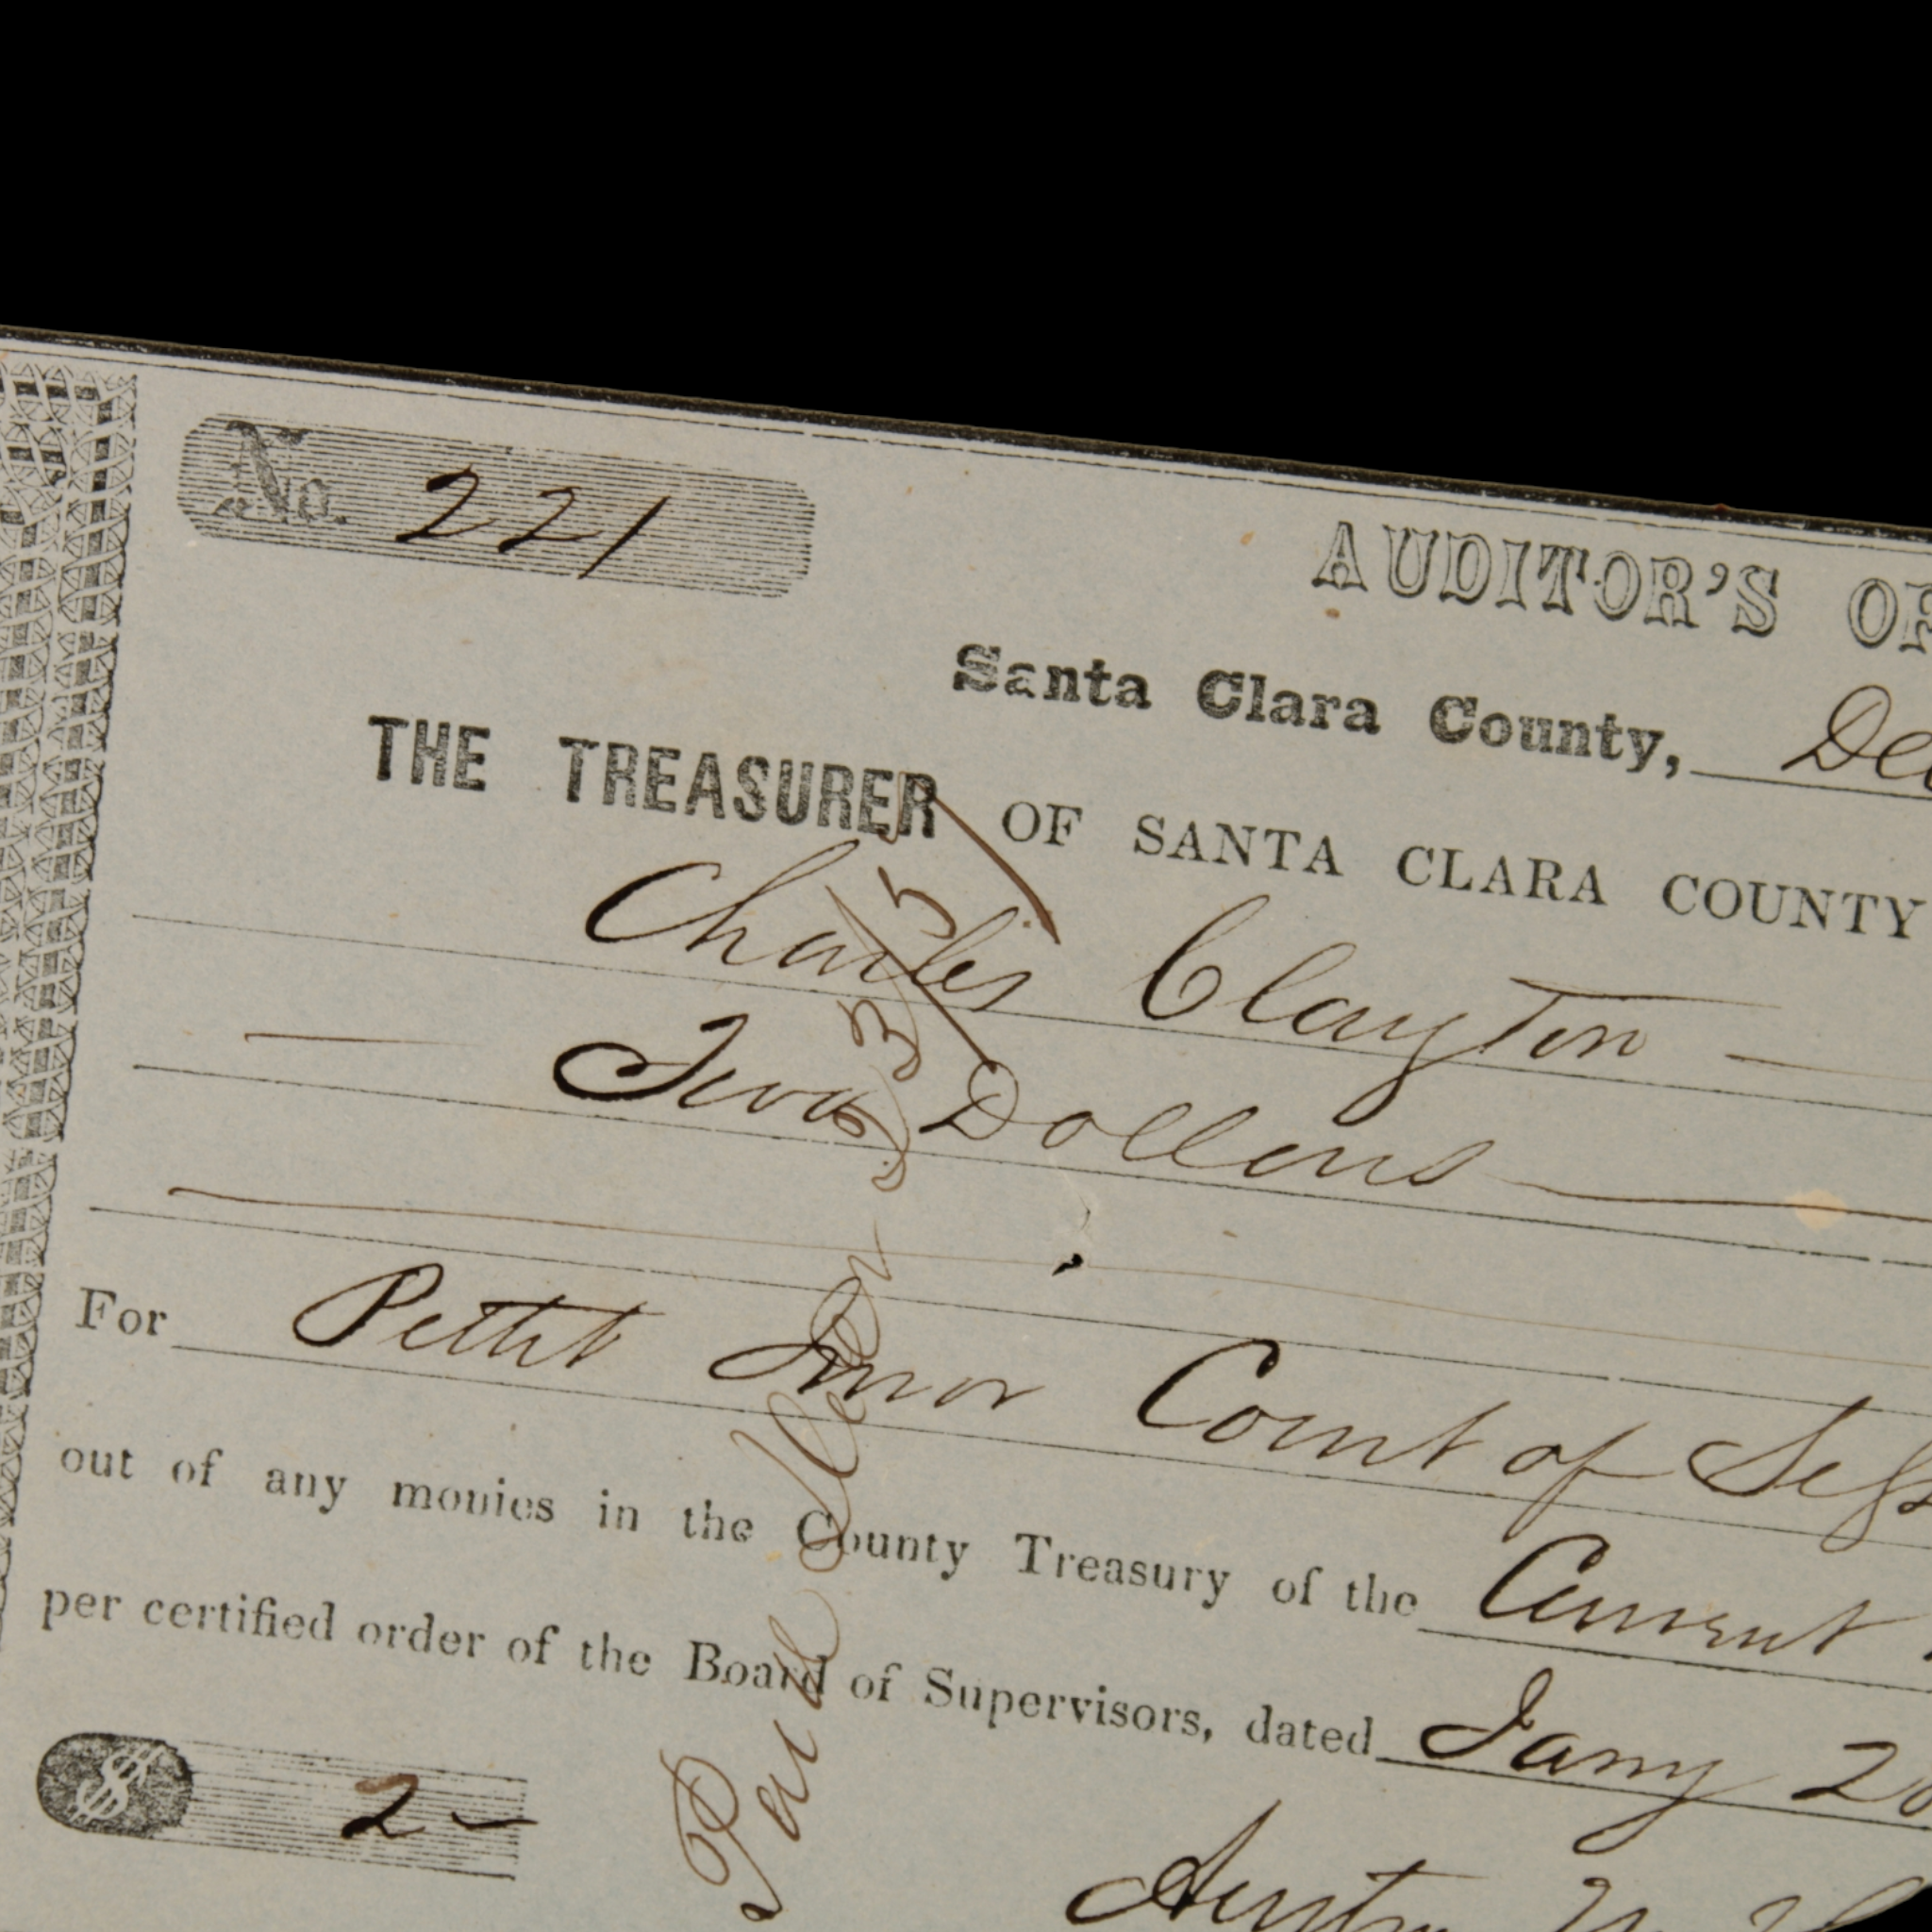 No. 221
AUDITOR'S OF
Santa Clara County, Dec
THE TREASURER OF SANTA CLARA COUNTY
Charles Clayton
Two Dollars
For Pettit Juror Court of Sess
out of any monies in the County Treasury of the Current
per certified order of the Board of Supervisors, dated Jany 20
$ 2
Paid